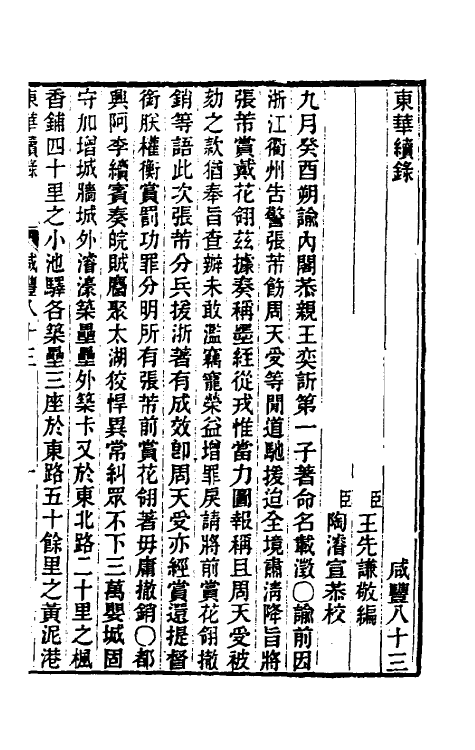 東華續錄　咸豐八十三
臣王先謙敬編
臣陶濬宣恭校
九月癸酉朔諭內閣恭親王奕訢第一子著命名載澂〇諭前因
浙江衢州吿警張芾飭周天受等閒道馳援迨全境肅淸降旨將
張芾賞戴花翎茲據奏稱墨絰從戎惟當力圖報稱且周天受被
劾之款猶奉旨查辦未敢濫竊寵榮益增罪戾請將前賞花翎撤
銷等語此次張芾分兵援浙著有成效卽周天受亦經賞還提督
銜朕權衡賞罰功罪分明所有張芾前賞花翎著毋庸撤銷〇都
興阿李續賓奏皖賊麕聚太湖狡悍異常糾眾不下三萬嬰城固
守加增城牆城外濬濠築壘壘外築卡又於東北路二十里之楓
香鋪四十里之小池驛各築壘三座於東路五十餘里之黃泥港
東華續錄　咸豐八十三　一